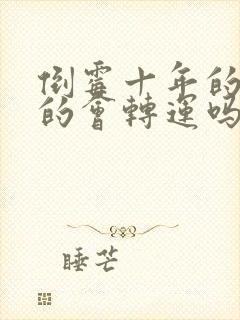 倒霉十年的
的會轉運吗
睡芒